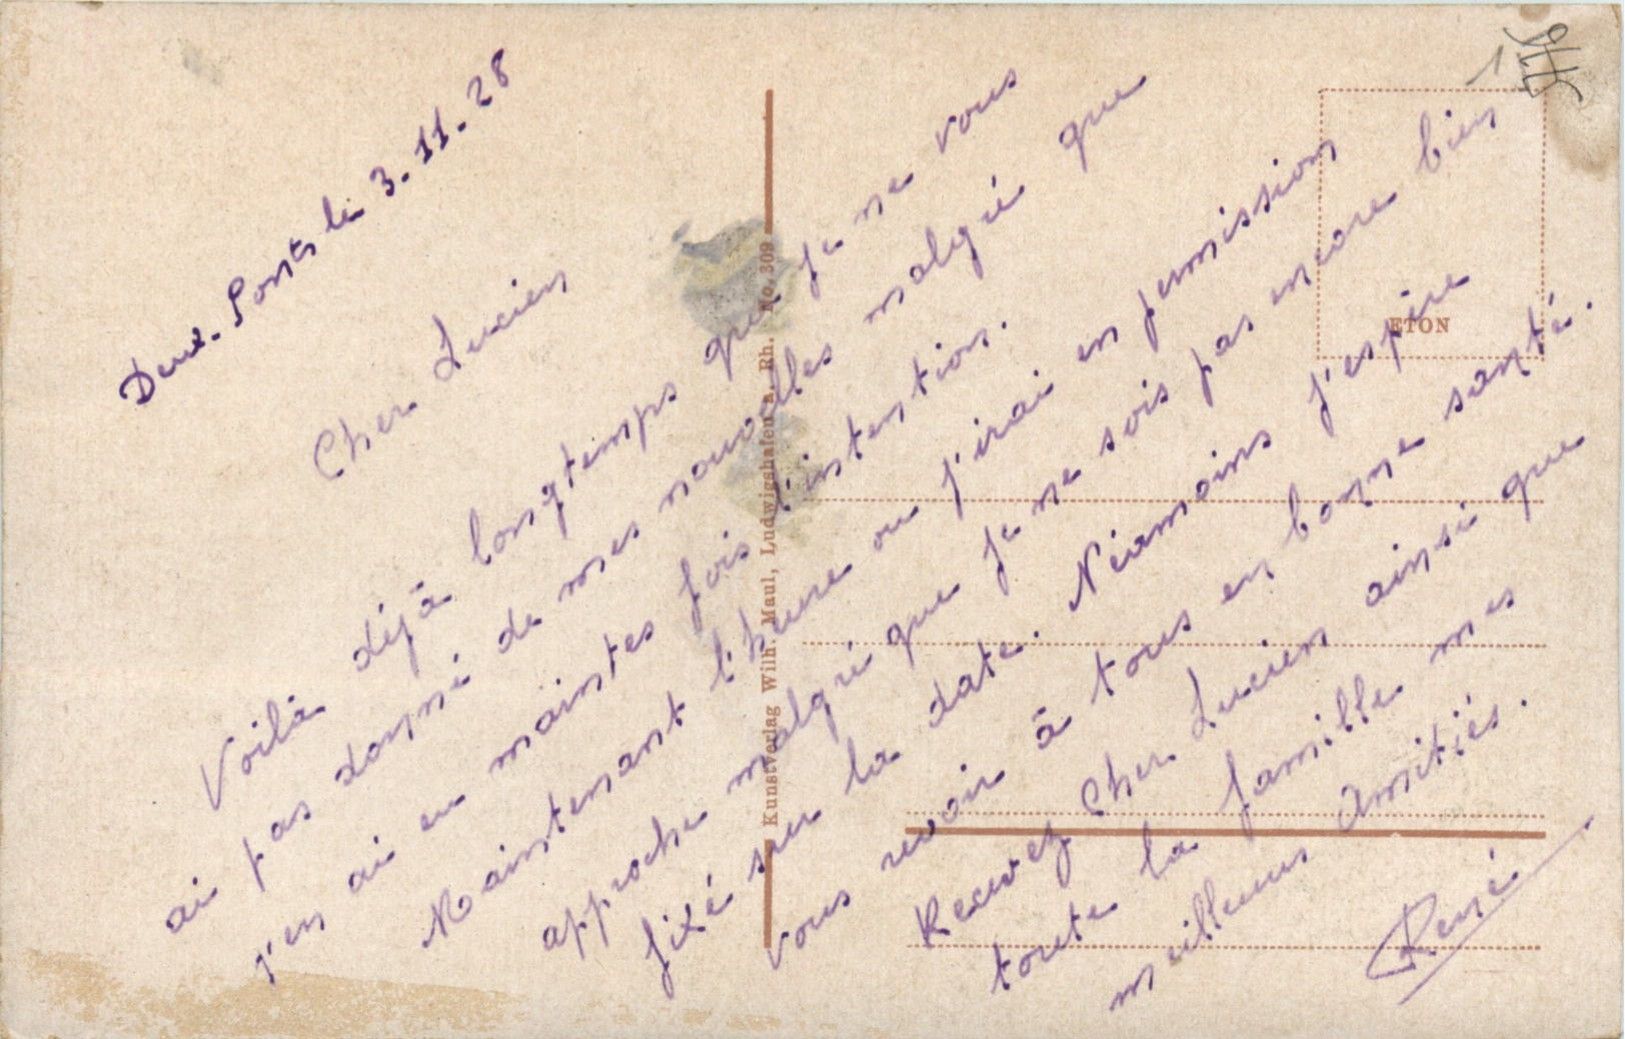 Deux-Ponts le 3-11-28
Cher Lucien
Voilà déjà longtemps que je ne vous
ai pas donné de mes nouvelles malgré que
j'en ai eu maintes fois l'intention.
Maintenant l'heure ou j'irai en permission
approche malgré que je ne sois pas encore bien
fixé sur la date. Néamoins j'espire
vous revoir à tous en bonne santé.
Recevez Cher Lucien ainsi que
toute la famille mes
meilleurs Amitiés.
René
Kunstverlag Wilh. Maul, Ludwigshafen a. Rh. No. 309
ETON